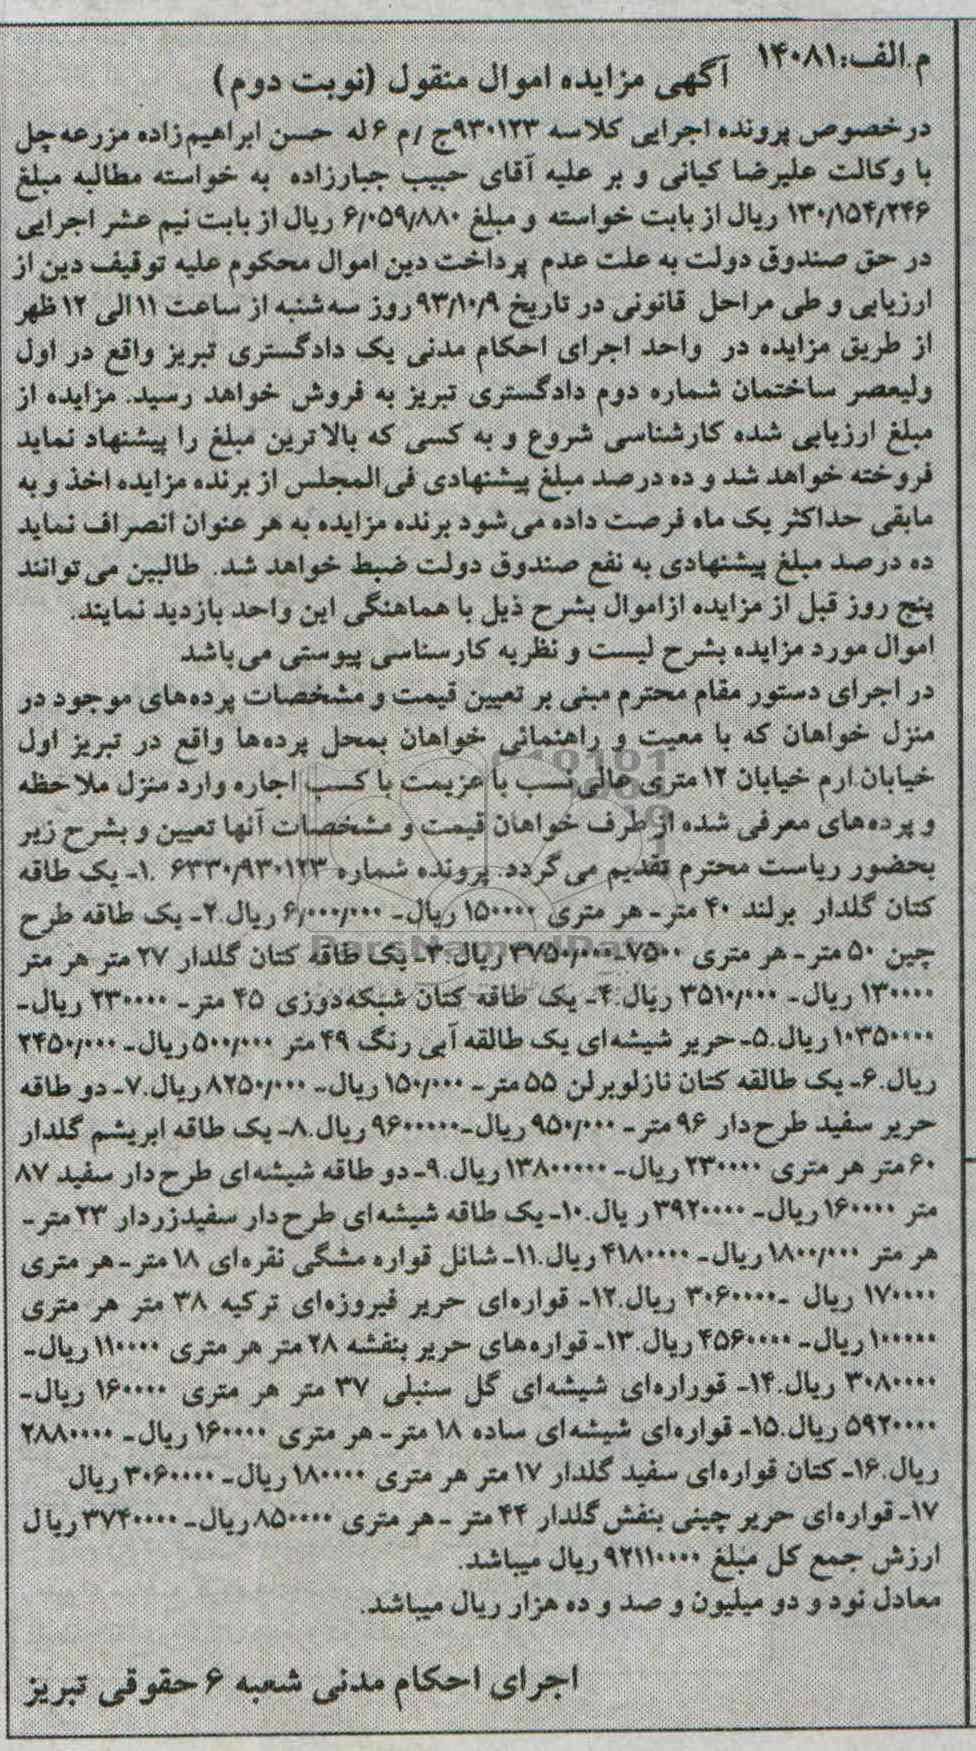 م.الف:۱۴۰۸۱
آگهی مزایده اموال منقول (نوبت دوم)
درخصوص پرونده اجرایی کلاسه ۹۳۰۱۲۳ج /م ۶ له حسن ابراهیم‌زاده مزرعه‌چل
با وکالت علیرضا کیانی و بر علیه آقای حبیب جبارزاده به خواسته مطالبه مبلغ
۱۳۰/۱۵۴/۲۴۶ ریال از بابت خواسته و مبلغ ۶/۰۵۹/۸۸۰ ریال از بابت نیم عشر اجرایی
در حق صندوق دولت به علت عدم پرداخت دین اموال محکوم علیه توقیف دین از
ارزیابی و طی مراحل قانونی در تاریخ ۹۳/۱۰/۹ روز سه‌شنبه از ساعت ۱۱ الی ۱۲ ظهر
از طریق مزایده در واحد اجرای احکام مدنی یک دادگستری تبریز واقع در اول
ولیعصر ساختمان شماره دوم دادگستری تبریز به فروش خواهد رسید. مزایده از
مبلغ ارزیابی شده کارشناسی شروع و به کسی که بالاترین مبلغ را پیشنهاد نماید
فروخته خواهد شد و ده درصد مبلغ پیشنهادی فی‌المجلس از برنده مزایده اخذ و به
مابقی حداکثر یک ماه فرصت داده می‌شود برنده مزایده به هر عنوان انصراف نماید
ده درصد مبلغ پیشنهادی به نفع صندوق دولت ضبط خواهد شد. طالبین می‌توانند
پنج روز قبل از مزایده ازاموال بشرح ذیل با هماهنگی این واحد بازدید نمایند.
اموال مورد مزایده بشرح لیست و نظریه کارسناسی پیوستی می‌باشد
در اجرای دستور مقام محترم مبنی بر تعیین قیمت و مشخصات پرده‌های موجود در
منزل خواهان که با معیت و راهنمائی خواهان بمحل پرده‌ها واقع در تبریز اول
خیابان.ارم خیابان ۱۲ متری عالی‌نسب با عزیمت با کسب اجاره وارد منزل ملاحظه
و پرده‌های معرفی شده از طرف خواهان قیمت و مشخصات آنها تعیین و بشرح زیر
بحضور ریاست محترم تقدیم می‌گردد. پرونده شماره ۶۳۳۰/۹۳۰۱۲۳ .۱- یک طاقه
کتان گلدار برلند ۴۰ متر- هر متری ۱۵۰۰۰۰ ریال- ۶/۰۰۰/۰۰۰ ریال.۲- یک طاقه طرح
چین ۵۰ متر- هر متری ۷۵۰۰-۳۷۵۰/۰۰۰ ریال.۳- یک طاقه کتان گلدار ۲۷ متر هر متر
۱۳۰۰۰۰ ریال- ۳۵۱۰/۰۰۰ ریال.۴- یک طاقه کتان شبکه‌دوزی ۴۵ متر- ۲۳۰۰۰۰ ریال-
۱۰۳۵۰۰۰۰ ریال.۵- حریر شیشه‌ای یک طالقه آبی رنگ ۴۹ متر ۵۰۰/۰۰۰ ریال- ۲۴۵۰/۰۰۰
ریال.۶- یک طالقه کتان نازلوبرلن ۵۵ متر- ۱۵۰/۰۰۰ ریال- ۸۲۵۰/۰۰۰ ریال.۷- دو طاقه
حریر سفید طرح‌دار ۹۶ متر- ۹۵۰/۰۰۰ ریال-۹۶۰۰۰۰۰ ریال.۸- یک طاقه ابریشم گلدار
۶۰ متر هر متری ۲۳۰۰۰۰ ریال- ۱۳۸۰۰۰۰۰ ریال.۹- دو طاقه شیشه‌ای طرح‌دار سفید ۸۷
متر ۱۶۰۰۰۰ ریال- ۳۹۲۰۰۰۰ ر یال.۱۰- یک طاقه شیشه‌ای طرح‌دار سفیدزردار ۲۳ متر-
هر متر ۱۸۰۰/۰۰۰ ریال- ۴۱۸۰۰۰۰ ریال.۱۱- شانل قواره مشگی نقره‌ای ۱۸ متر- هر متری
۱۷۰۰۰۰ ریال -۳۰۶۰۰۰۰ ریال.۱۲- قواره‌ای حریر فیروزه‌ای ترکیه ۳۸ متر هر متری
۱۰۰۰۰۰ ریال- ۴۵۶۰۰۰۰ ریال.۱۳- قواره‌های حریر بنفشه ۲۸ متر هر متری ۱۱۰۰۰۰ ریال-
۳۰۸۰۰۰۰ ریال.۱۴- قوراره‌ای شیشه‌ای گل سنبلی ۳۷ متر هر متری ۱۶۰۰۰۰ ریال-
۵۹۲۰۰۰۰ ریال.۱۵- قواره‌ای شیشه‌ای ساده ۱۸ متر- هر متری ۱۶۰۰۰۰ ریال- ۲۸۸۰۰۰۰
ریال.۱۶- کتان قواره‌ای سفید گلدار ۱۷ متر هر متری ۱۸۰۰۰۰ ریال- ۳۰۶۰۰۰۰ ریال
۱۷- قواره‌ای حریر چینی بنفش گلدار ۴۴ متر - هر متری ۸۵۰۰۰۰ ریال- ۳۷۴۰۰۰۰ ریال
ارزش جمع کل مبلغ ۹۲۱۱۰۰۰۰ ریال میباشد.
معادل نود و دو میلیون و صد و ده هزار ریال میباشد.
اجرای احکام مدنی شعبه ۶ حقوقی تبریز
ParsNamadData